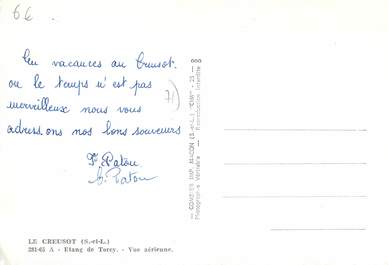 66
En vacances au Creusot.
ou le temps n'est pas
merveilleux nous vous
adressons nos bons souvenirs
71
F. Patou
LE CREUSOT (S.-et-L.)
281-65 A - Etang de Torcy. - Vue aérienne.
COMBIER IMP. MACON (S.-et-L.) "CIM"
Reproduction Interdite